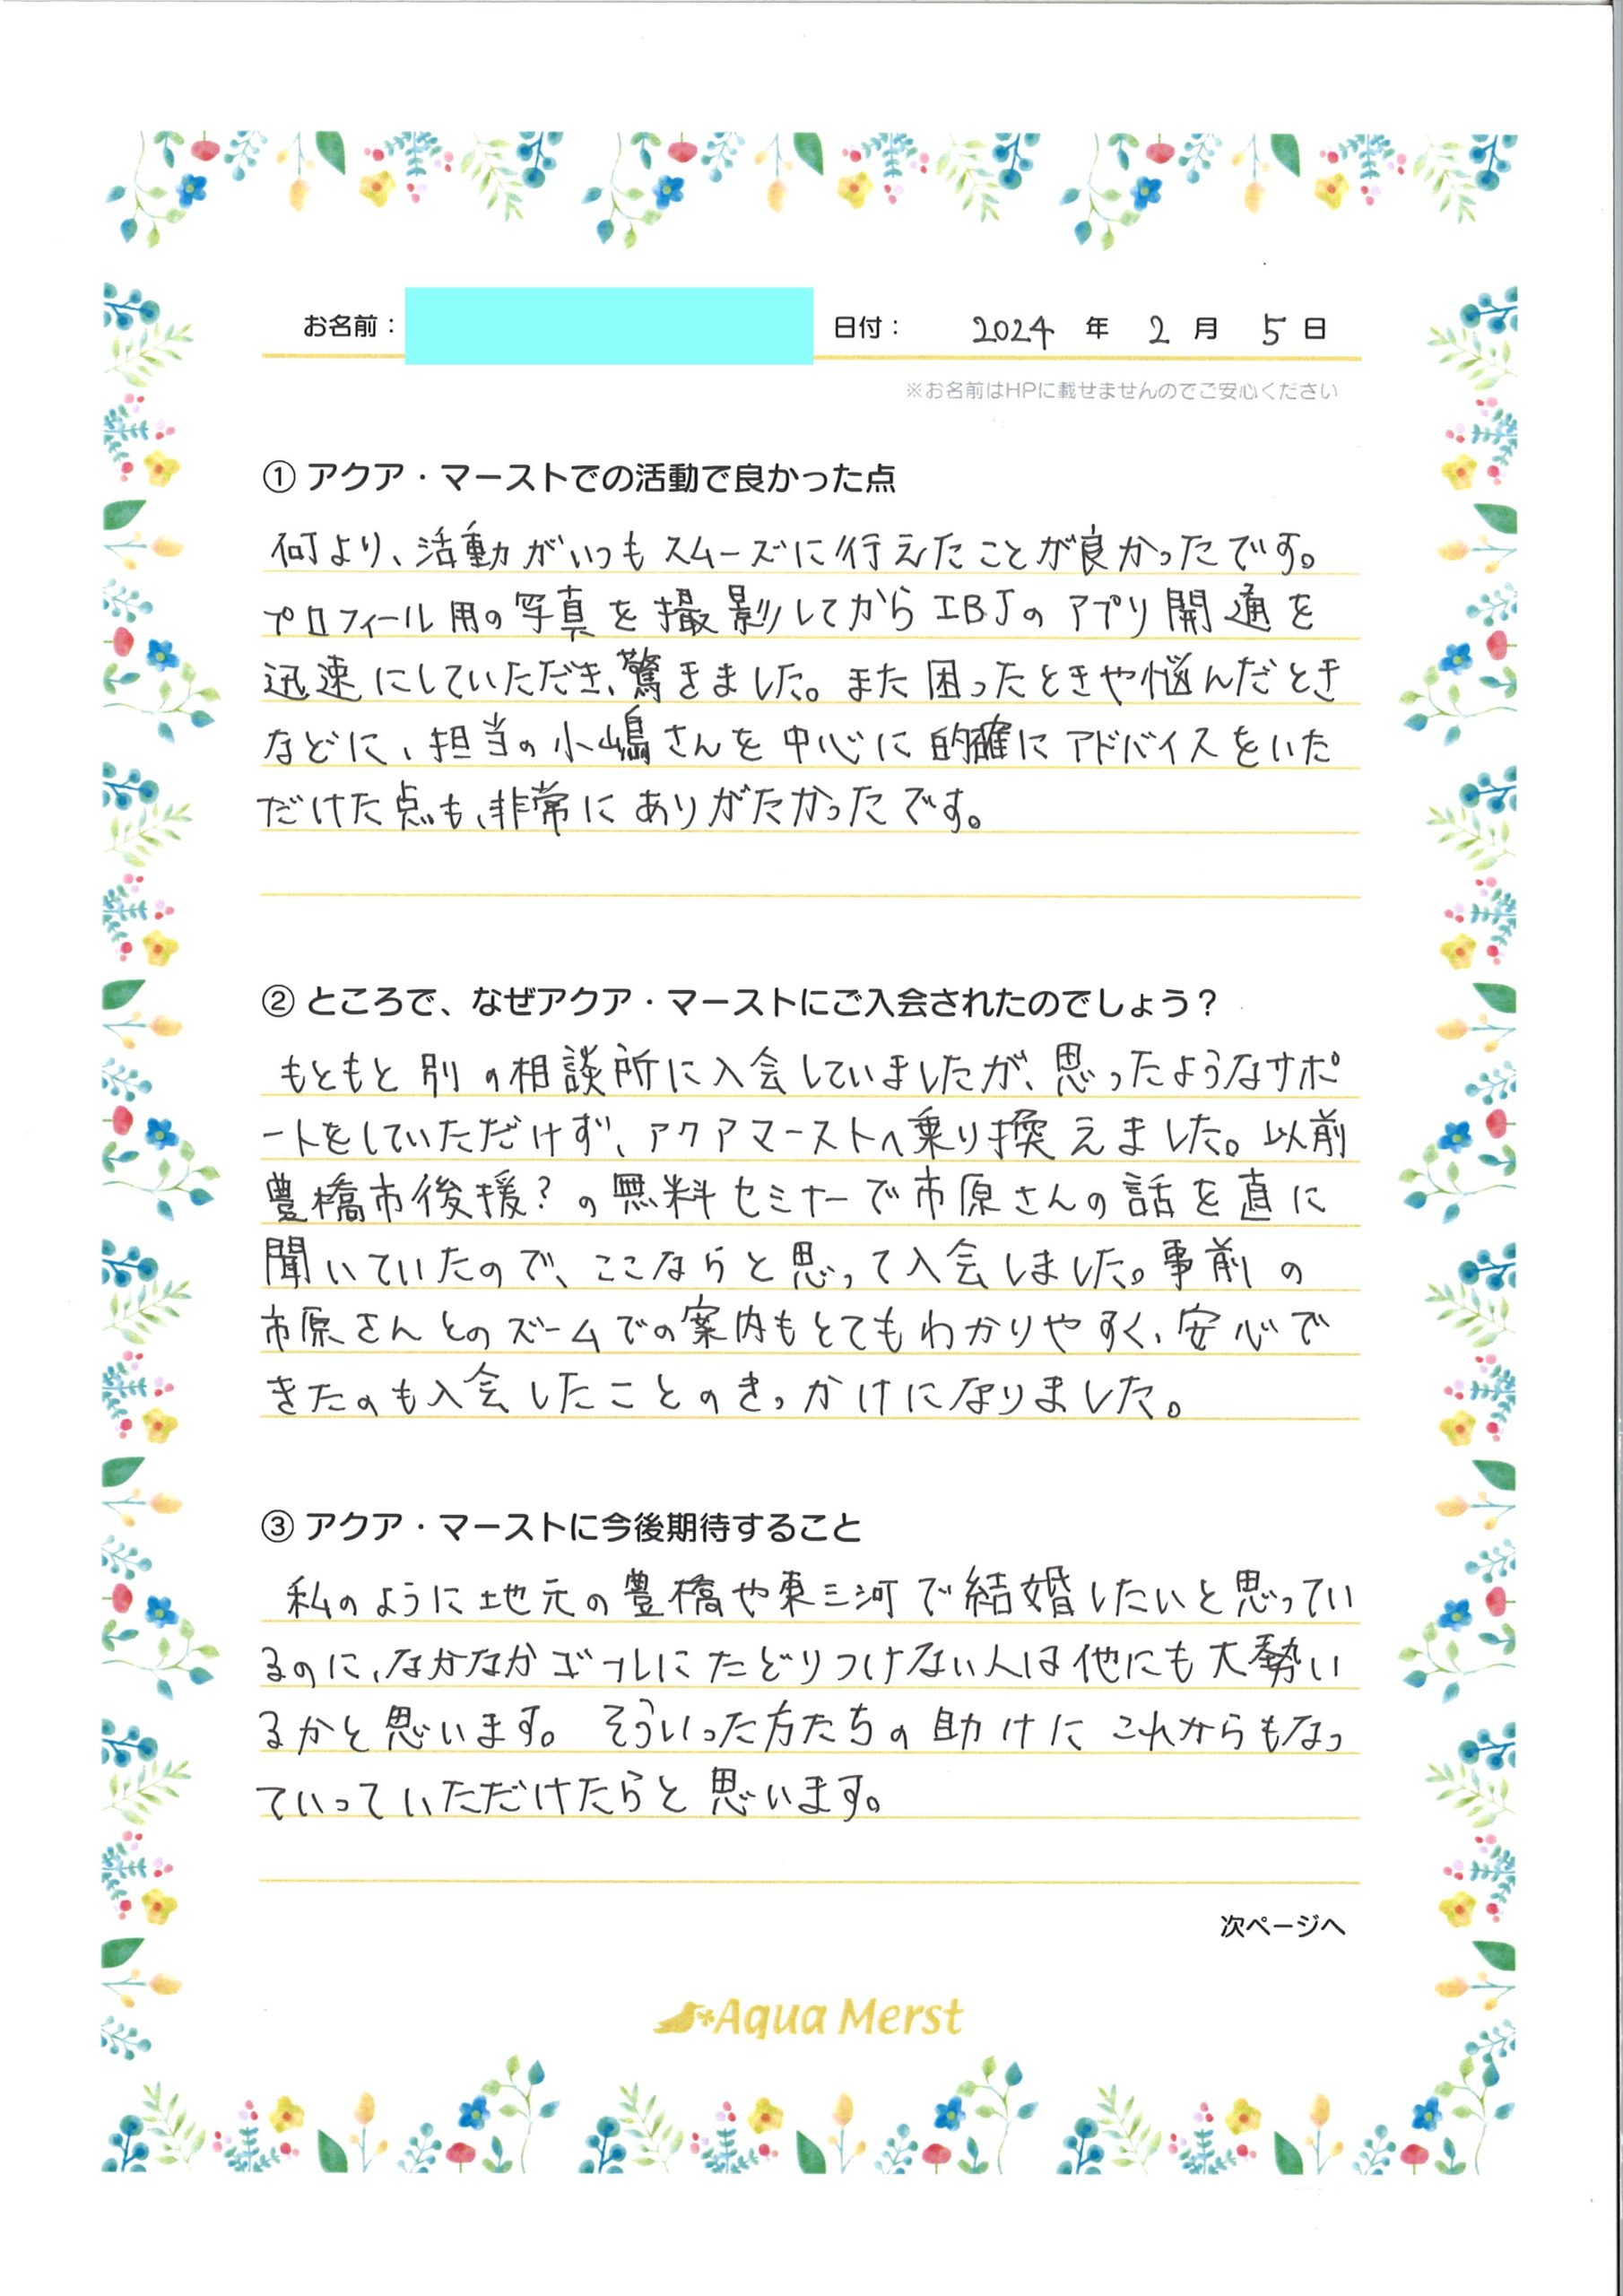 お名前：
日付： 2024 年 2 月 5 日
※お名前はHPに載せませんのでご安心ください
① アクア・マーストでの活動で良かった点
何より、活動がいつもスムーズに行えたことが良かったです。
プロフィール用の写真を撮影してからIBJのアプリ開通を
迅速にしていただき、驚きました。また困ったときや悩んだとき
などに、担当の小嶋さんを中心に的確にアドバイスをいた
だけた点も、非常にありがたかったです。
② ところで、なぜアクア・マーストにご入会されたのでしょう？
もともと別の相談所に入会していましたが、思ったようなサポ
ートをしていただけず、アクアマーストへ乗り換えました。以前
豊橋市後援?の無料セミナーで市原さんの話を直に
聞いていたので、ここならと思って入会しました。事前の
市原さんとのズームでの案内もとてもわかりやすく、安心で
きたのも入会したことのきっかけになりました。
③ アクア・マーストに今後期待すること
私のように地元の豊橋や東三河で結婚したいと思ってい
るのに、なかなかゴールにたどりつけない人は他にも大勢い
るかと思います。そういった方たちの助けにこれからもなっ
ていっていただけたらと思います。
次ページへ
Aqua Merst